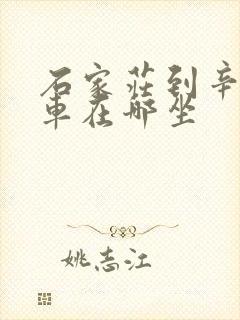 石家莊到辛
車在哪坐
姚志江